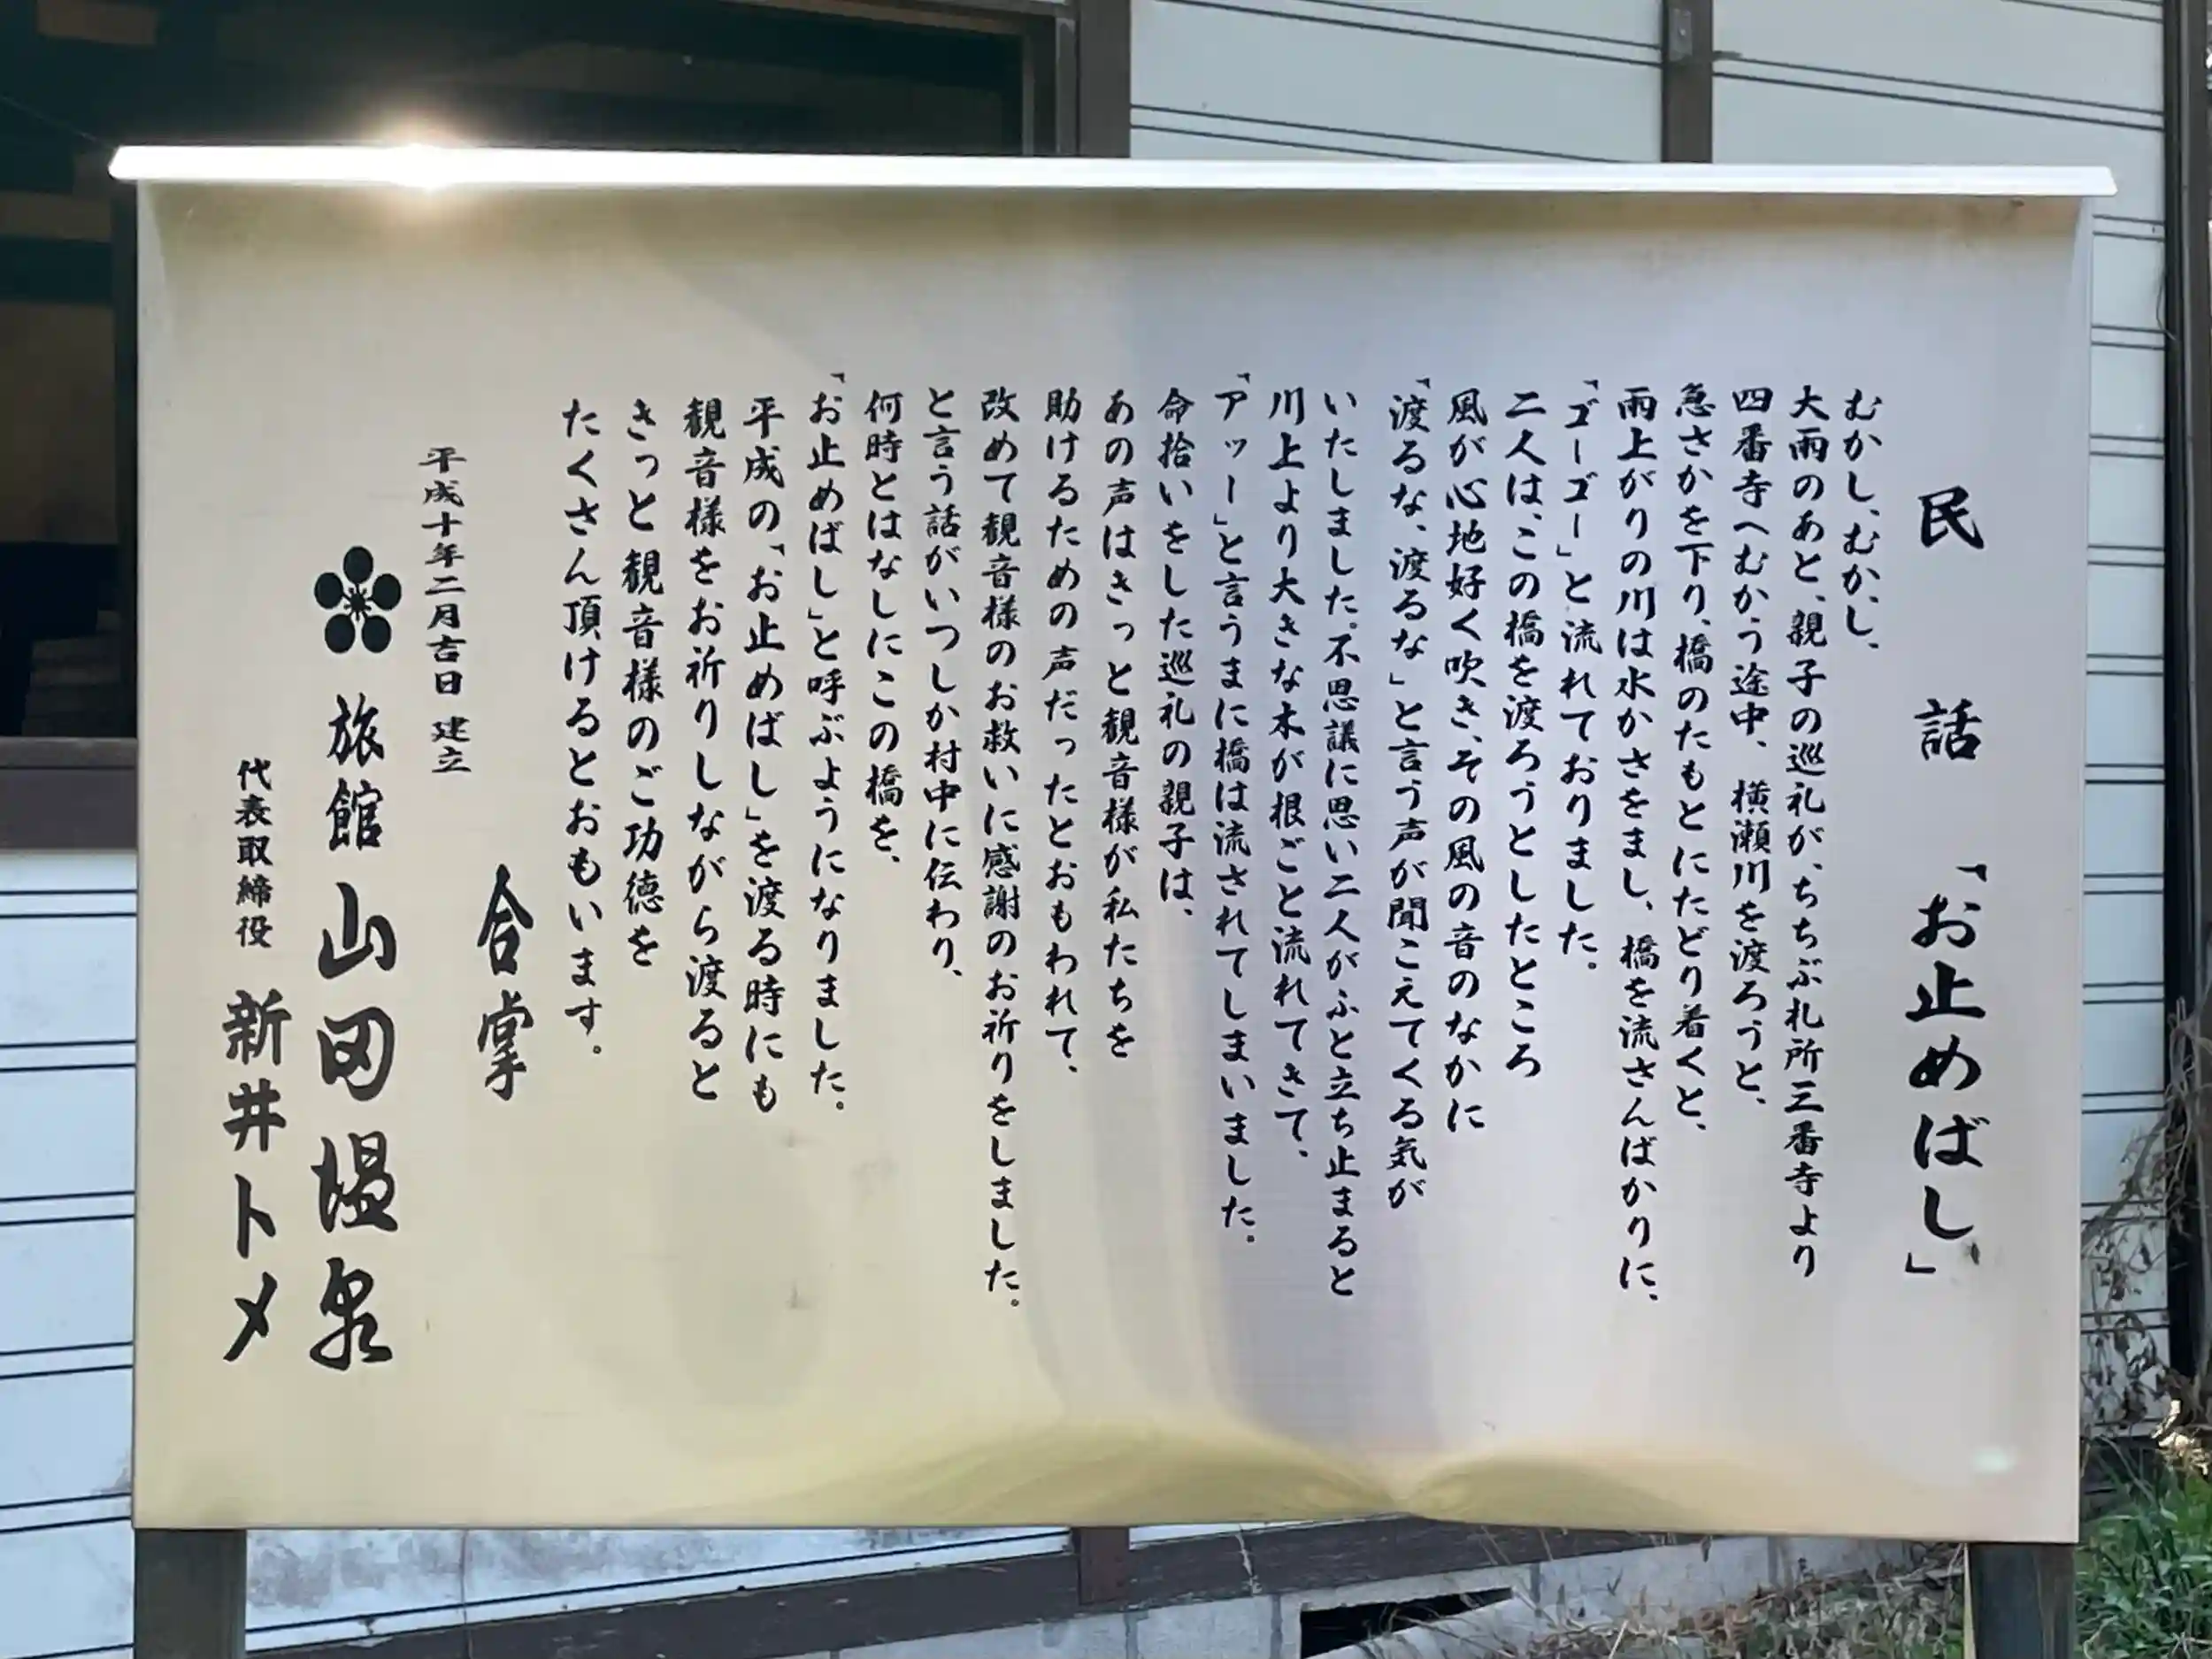 民話 「お止めばし」
むかし、むかし、
大雨のあと、親子の巡礼が、ちちぶ札所三番寺より
四番寺へむかう途中、横瀬川を渡ろうと、
急さかを下り、橋のたもとにたどり着くと、
雨上がりの川は水かさをまし、橋を流さんばかりに、
「ゴーゴー」と流れておりました。
二人は、この橋を渡ろうとしたところ
風が心地好く吹き、その風の音のなかに
「渡るな、渡るな」と言う声が聞こえてくる気が
いたしました。不思議に思い二人がふと立ち止まると
川上より大きな木が根ごと流れてきて、
「アッー」と言うまに橋は流されてしまいました。
命拾いをした巡礼の親子は、
あの声はきっと観音様が私たちを
助けるための声だったとおもわれて、
改めて観音様のお救いに感謝のお祈りをしました。
と言う話がいつしか村中に伝わり、
何時とはなしにこの橋を、
「お止めばし」と呼ぶようになりました。
平成の「お止めばし」を渡る時にも
観音様をお祈りしながら渡ると
きっと観音様のご功徳を
たくさん頂けるとおもいます。
合掌
平成十年二月吉日 建立
旅館 山田温泉
代表取締役 新井トメ